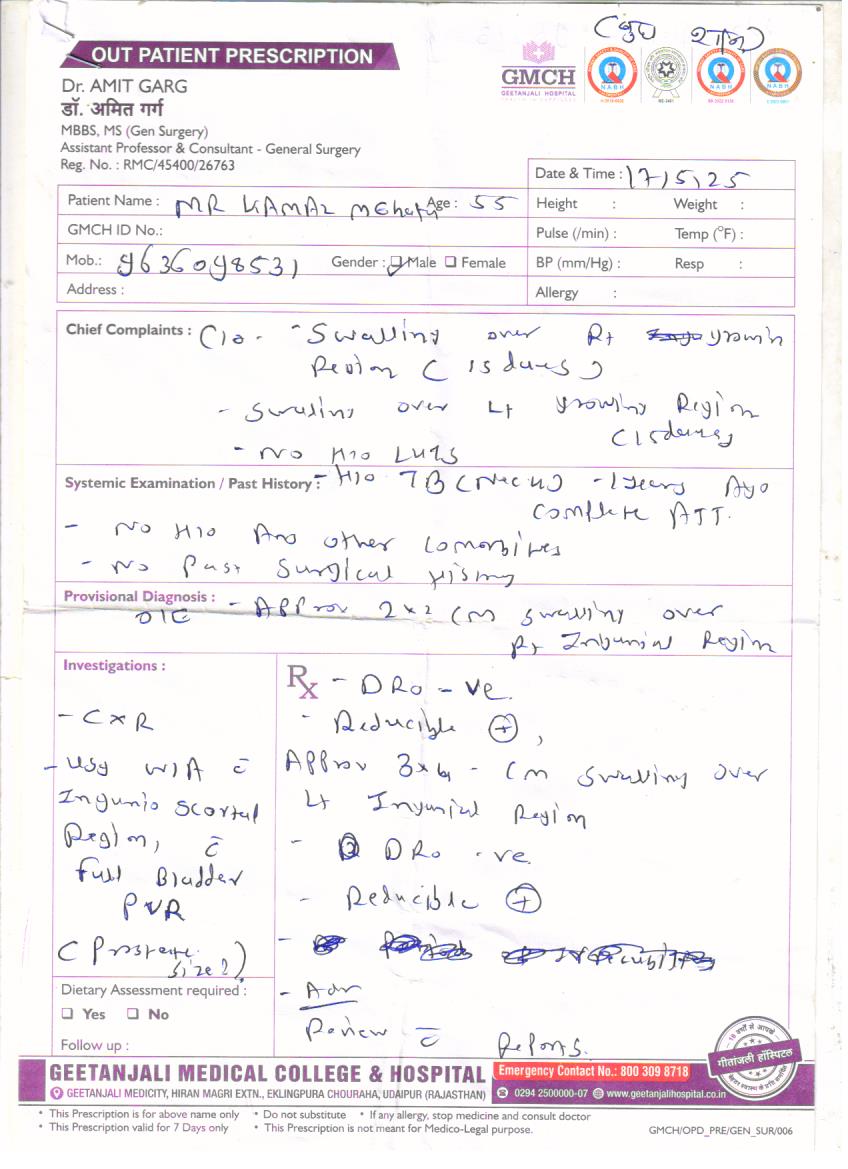 OUT PATIENT PRESCRIPTION
Dr. AMIT GARG
डॉ. अमित गर्ग
MBBS, MS (Gen Surgery)
Assistant Professor & Consultant - General Surgery
Reg. No. : RMC/45400/26763
GMCH
GEETANJALI HOSPITAL
NABH
NABH
NABH
Date & Time : 17/5/25
Patient Name : MR KAMAL Age : 55
Height : Weight :
GMCH ID No.:
Pulse (/min) : Temp (°F) :
Mob.: 9636098531 Gender : Male Female
BP (mm/Hg) : Resp :
Address :
Allergy :
Chief Complaints : C/o - Swelling over Rt
Region (15 days)
- Swelling over Lt Region
(15 days)
- NO H/o LUTS
Systemic Examination / Past History : - H/o TB (Neck) - 1 years Ago
complete ATT.
- NO H/o Any other comorbities
- NO Past Surgical History
Provisional Diagnosis :
O/E - Approx 2x2 cm swelling over
Rt Inguinal Region
Investigations :
Rx - DRO - ve.
- CXR
- Reducible (+),
- USG W/A c̄
Approx 3x4 - cm swelling over
Inguino scortal
Lt Inguinal Region
Region, c̄
- DRO -ve
Full Bladder
- Reducible (+)
PVR
(Prostate size?)
Dietary Assessment required :
Yes No
- Adv
Review c̄ Reports.
Follow up :
गीतांजली हॉस्पिटल
GEETANJALI MEDICAL COLLEGE & HOSPITAL
Emergency Contact No.: 800 309 8718
GEETANJALI MEDICITY, HIRAN MAGRI EXTN., EKLINGPURA CHOURAHA, UDAIPUR (RAJASTHAN)
0294 2500000-07 www.geetanjalihospital.co.in
• This Prescription is for above name only • Do not substitute • If any allergy, stop medicine and consult doctor
• This Prescription valid for 7 Days only • This Prescription is not meant for Medico-Legal purpose.
GMCH/OPD_PRE/GEN_SUR/006